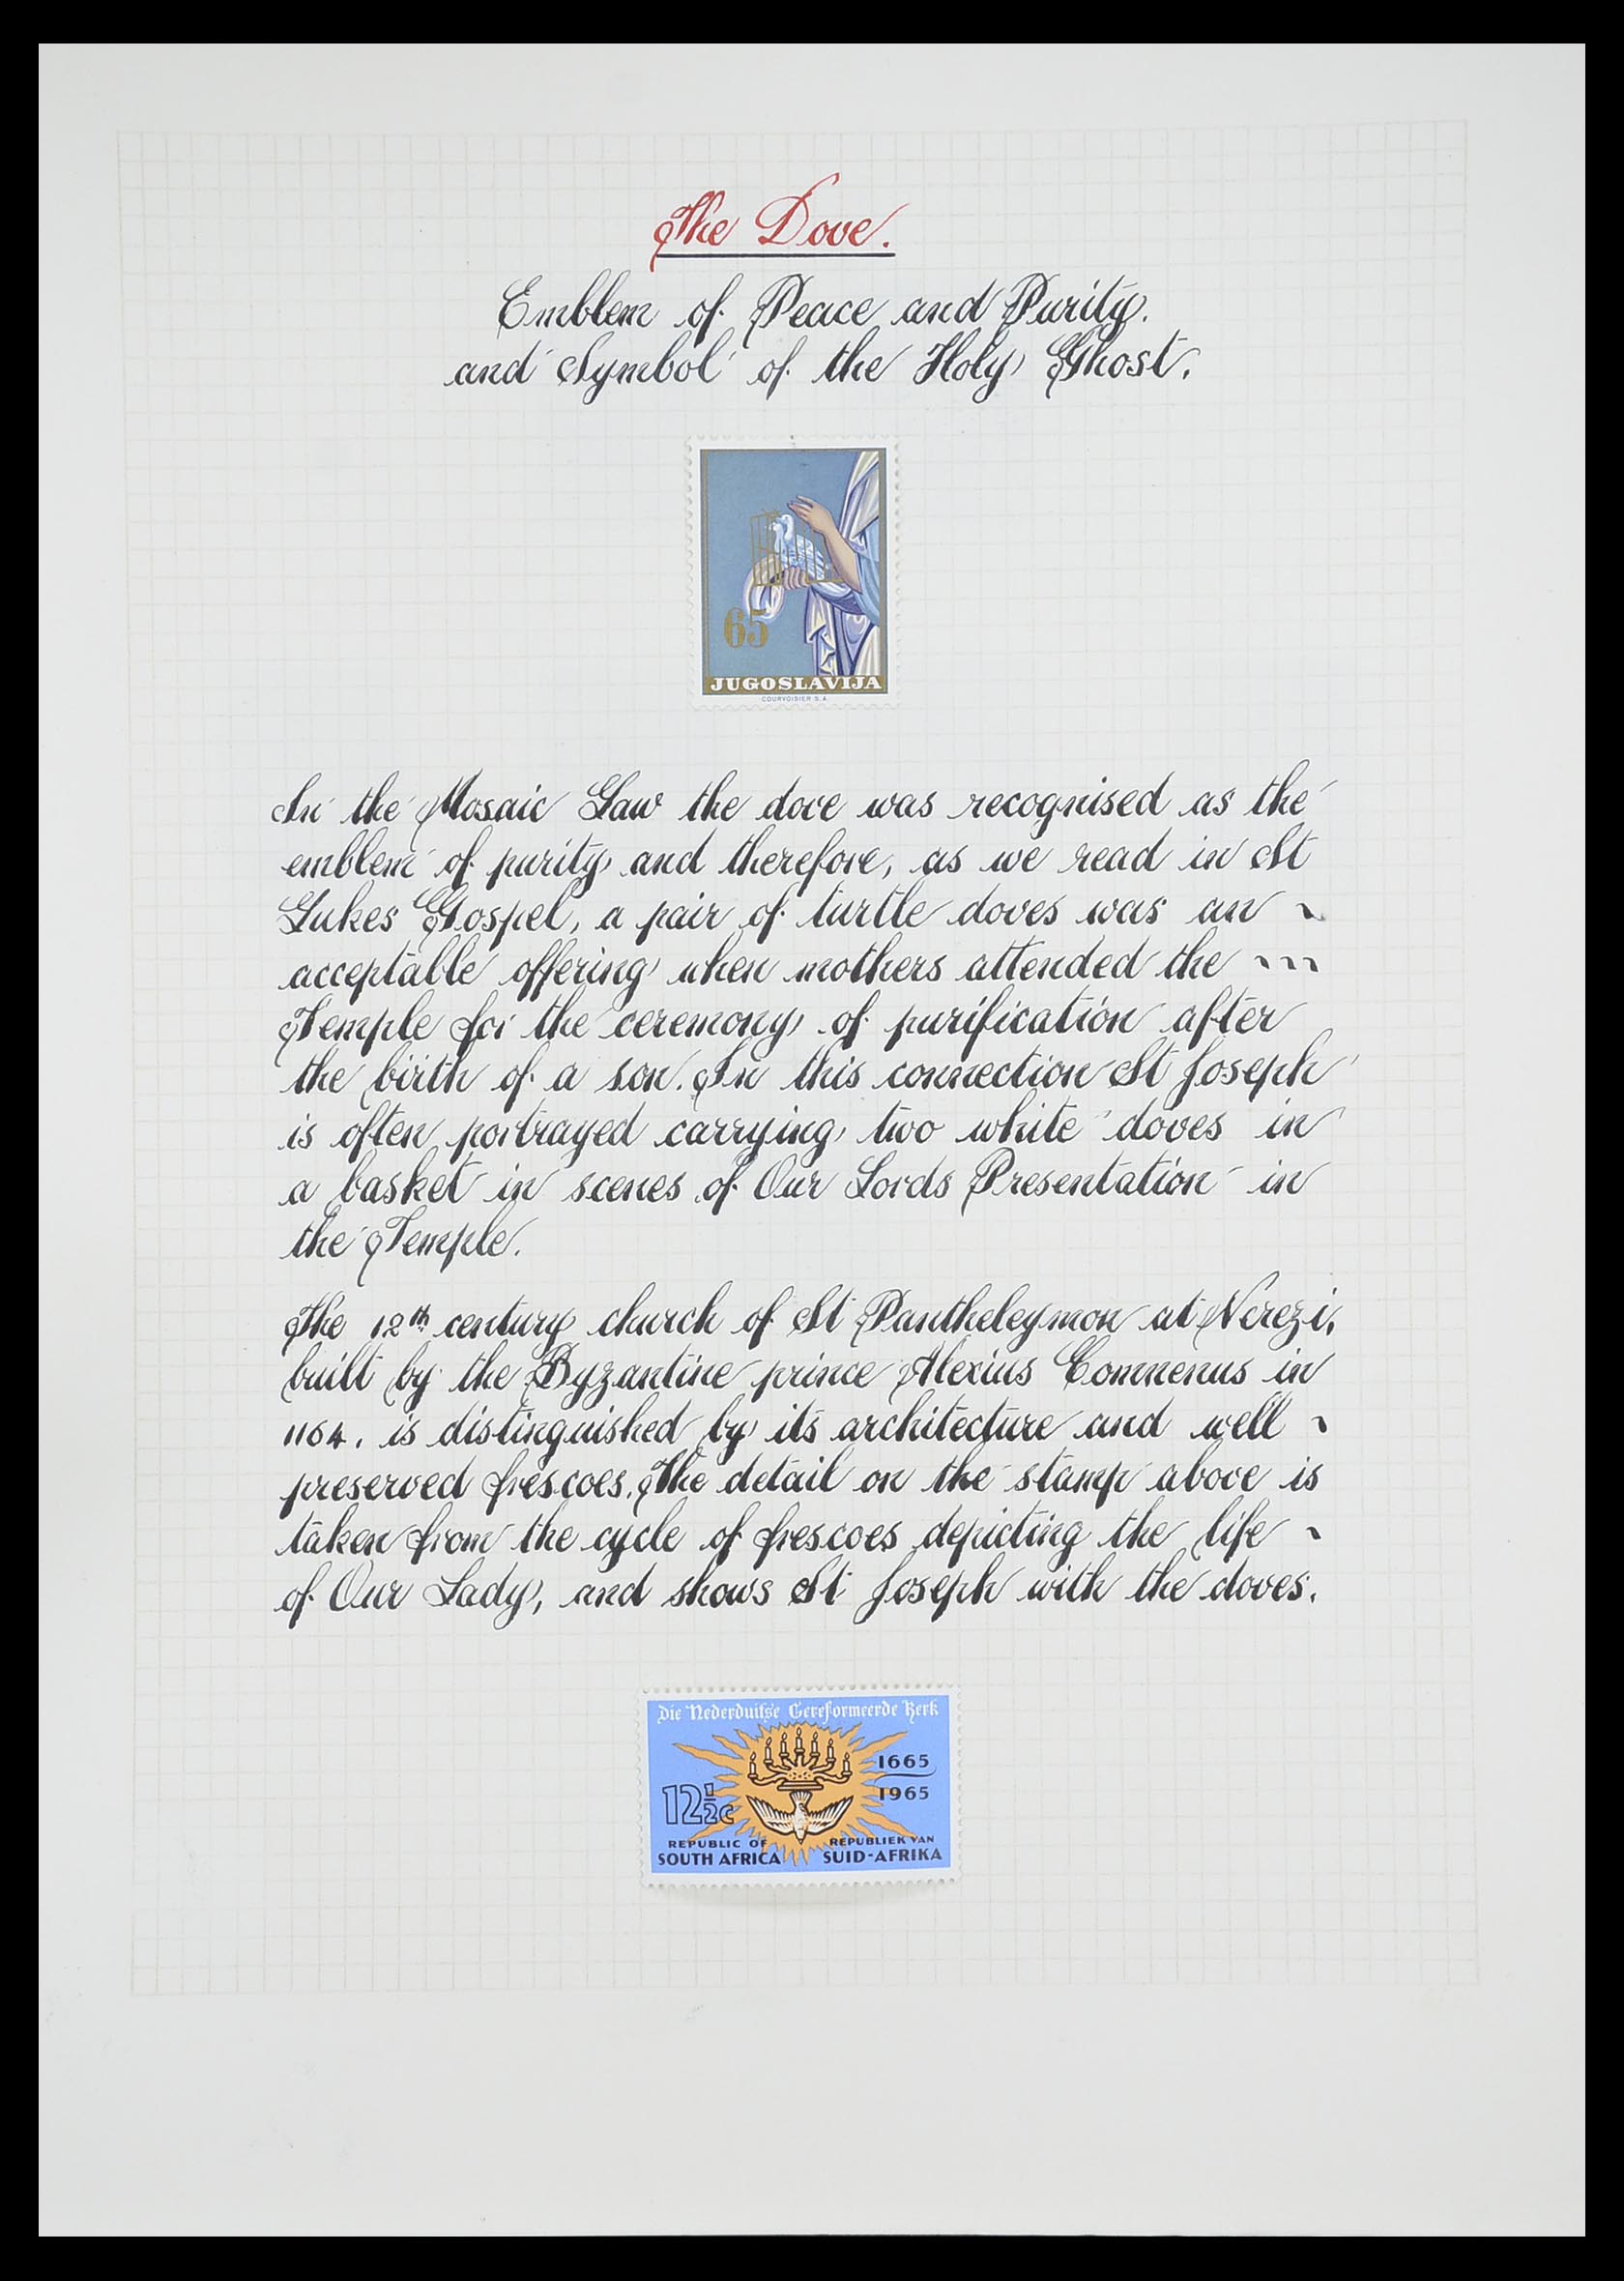 The Dove.
Emblem of Peace and Purity.
and Symbol of the Holy Ghost.
65
JUGOSLAVIJA
COURVOISIER S.A.
In the Mosaic Law the dove was recognised as the
emblem of purity and therefore, as we read in St
Lukes Gospel, a pair of turtle doves was an
acceptable offering when mothers attended the
Temple for the ceremony of purification after
the birth of a son. In this connection St Joseph
is often portrayed carrying two white doves in
a basket in scenes of Our Lords Presentation in
the Temple.
The 12th century church of St Pantheleymon at Nerezi,
built by the Byzantine prince Alexius Comnenus in
1164, is distinguished by its architecture and well
preserved frescoes. The detail on the stamp above is
taken from the cycle of frescoes depicting the life
of Our Lady, and shows St Joseph with the doves.
Die Nederduitse Gereformeerde Kerk
1665
1965
12½c
REPUBLIC OF
SOUTH AFRICA
REPUBLIEK VAN
SUID-AFRIKA